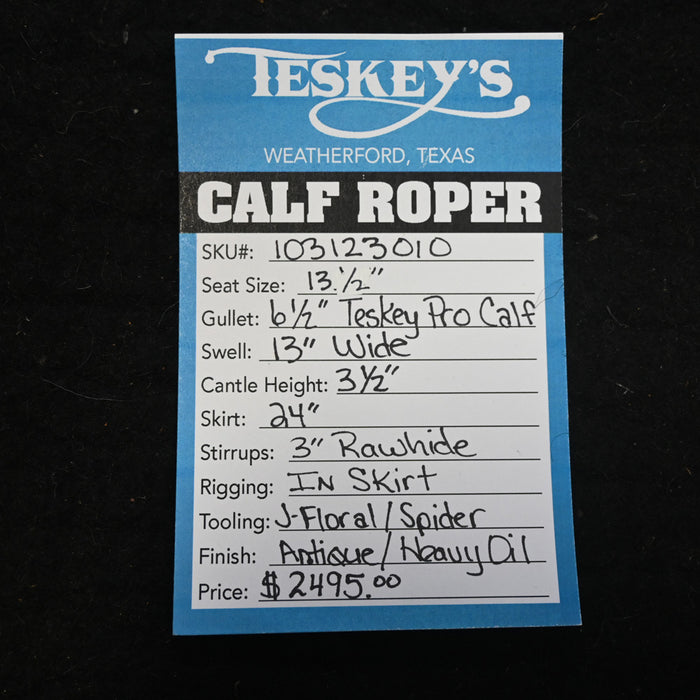 TESKEY'S
WEATHERFORD, TEXAS
CALF ROPER
SKU#: 103123010
Seat Size: 13.½"
Gullet: 6½" Teskey Pro Calf
Swell: 13" Wide
Cantle Height: 3½"
Skirt: 24"
Stirrups: 3" Rawhide
Rigging: IN Skirt
Tooling: J-Floral/Spider
Finish: Antique/Heavy Oil
Price: $2495.00